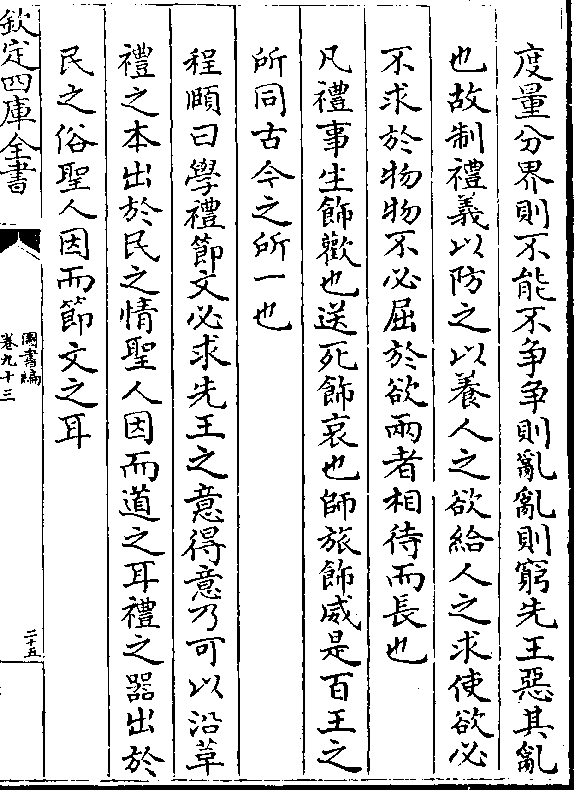 度量分界則不能不争争則亂亂則窮先王惡其亂
也故制禮義以防之以養人之欲給人之求使欲必
不求於物物不必屈於欲兩者相待而長也
凡禮事生飾歡也送死飾哀也師旅飾威是百王之
所同古今之所一也
程頤曰學禮節文必求先王之意得意乃可以沿革
禮之本出於民之情聖人因而道之耳禮之器出於
民之俗聖人因而節文之耳
欽定四庫全書
圖書編
卷九十三
二十五